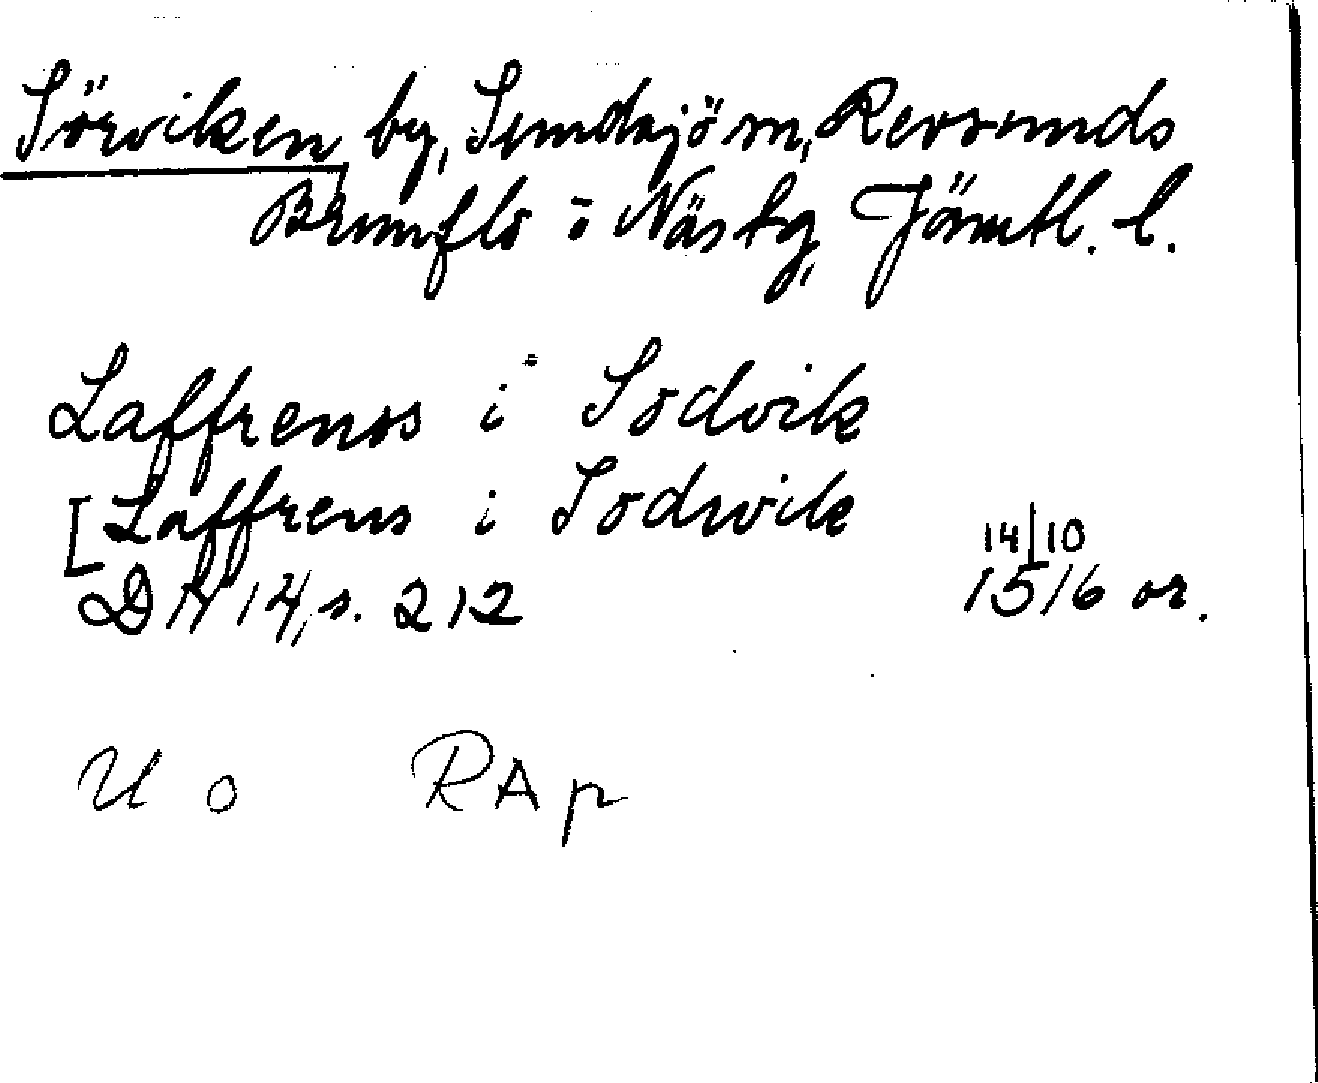 Sörviken, by, Sundsjö sn, Revsunds
Brunflo o Näs tg, Jämtl. l.
Laffrenss i Sodvik
[Laffrens i Sodwik
DN 14, s. 212 14/10 1516 or.
U o RAp